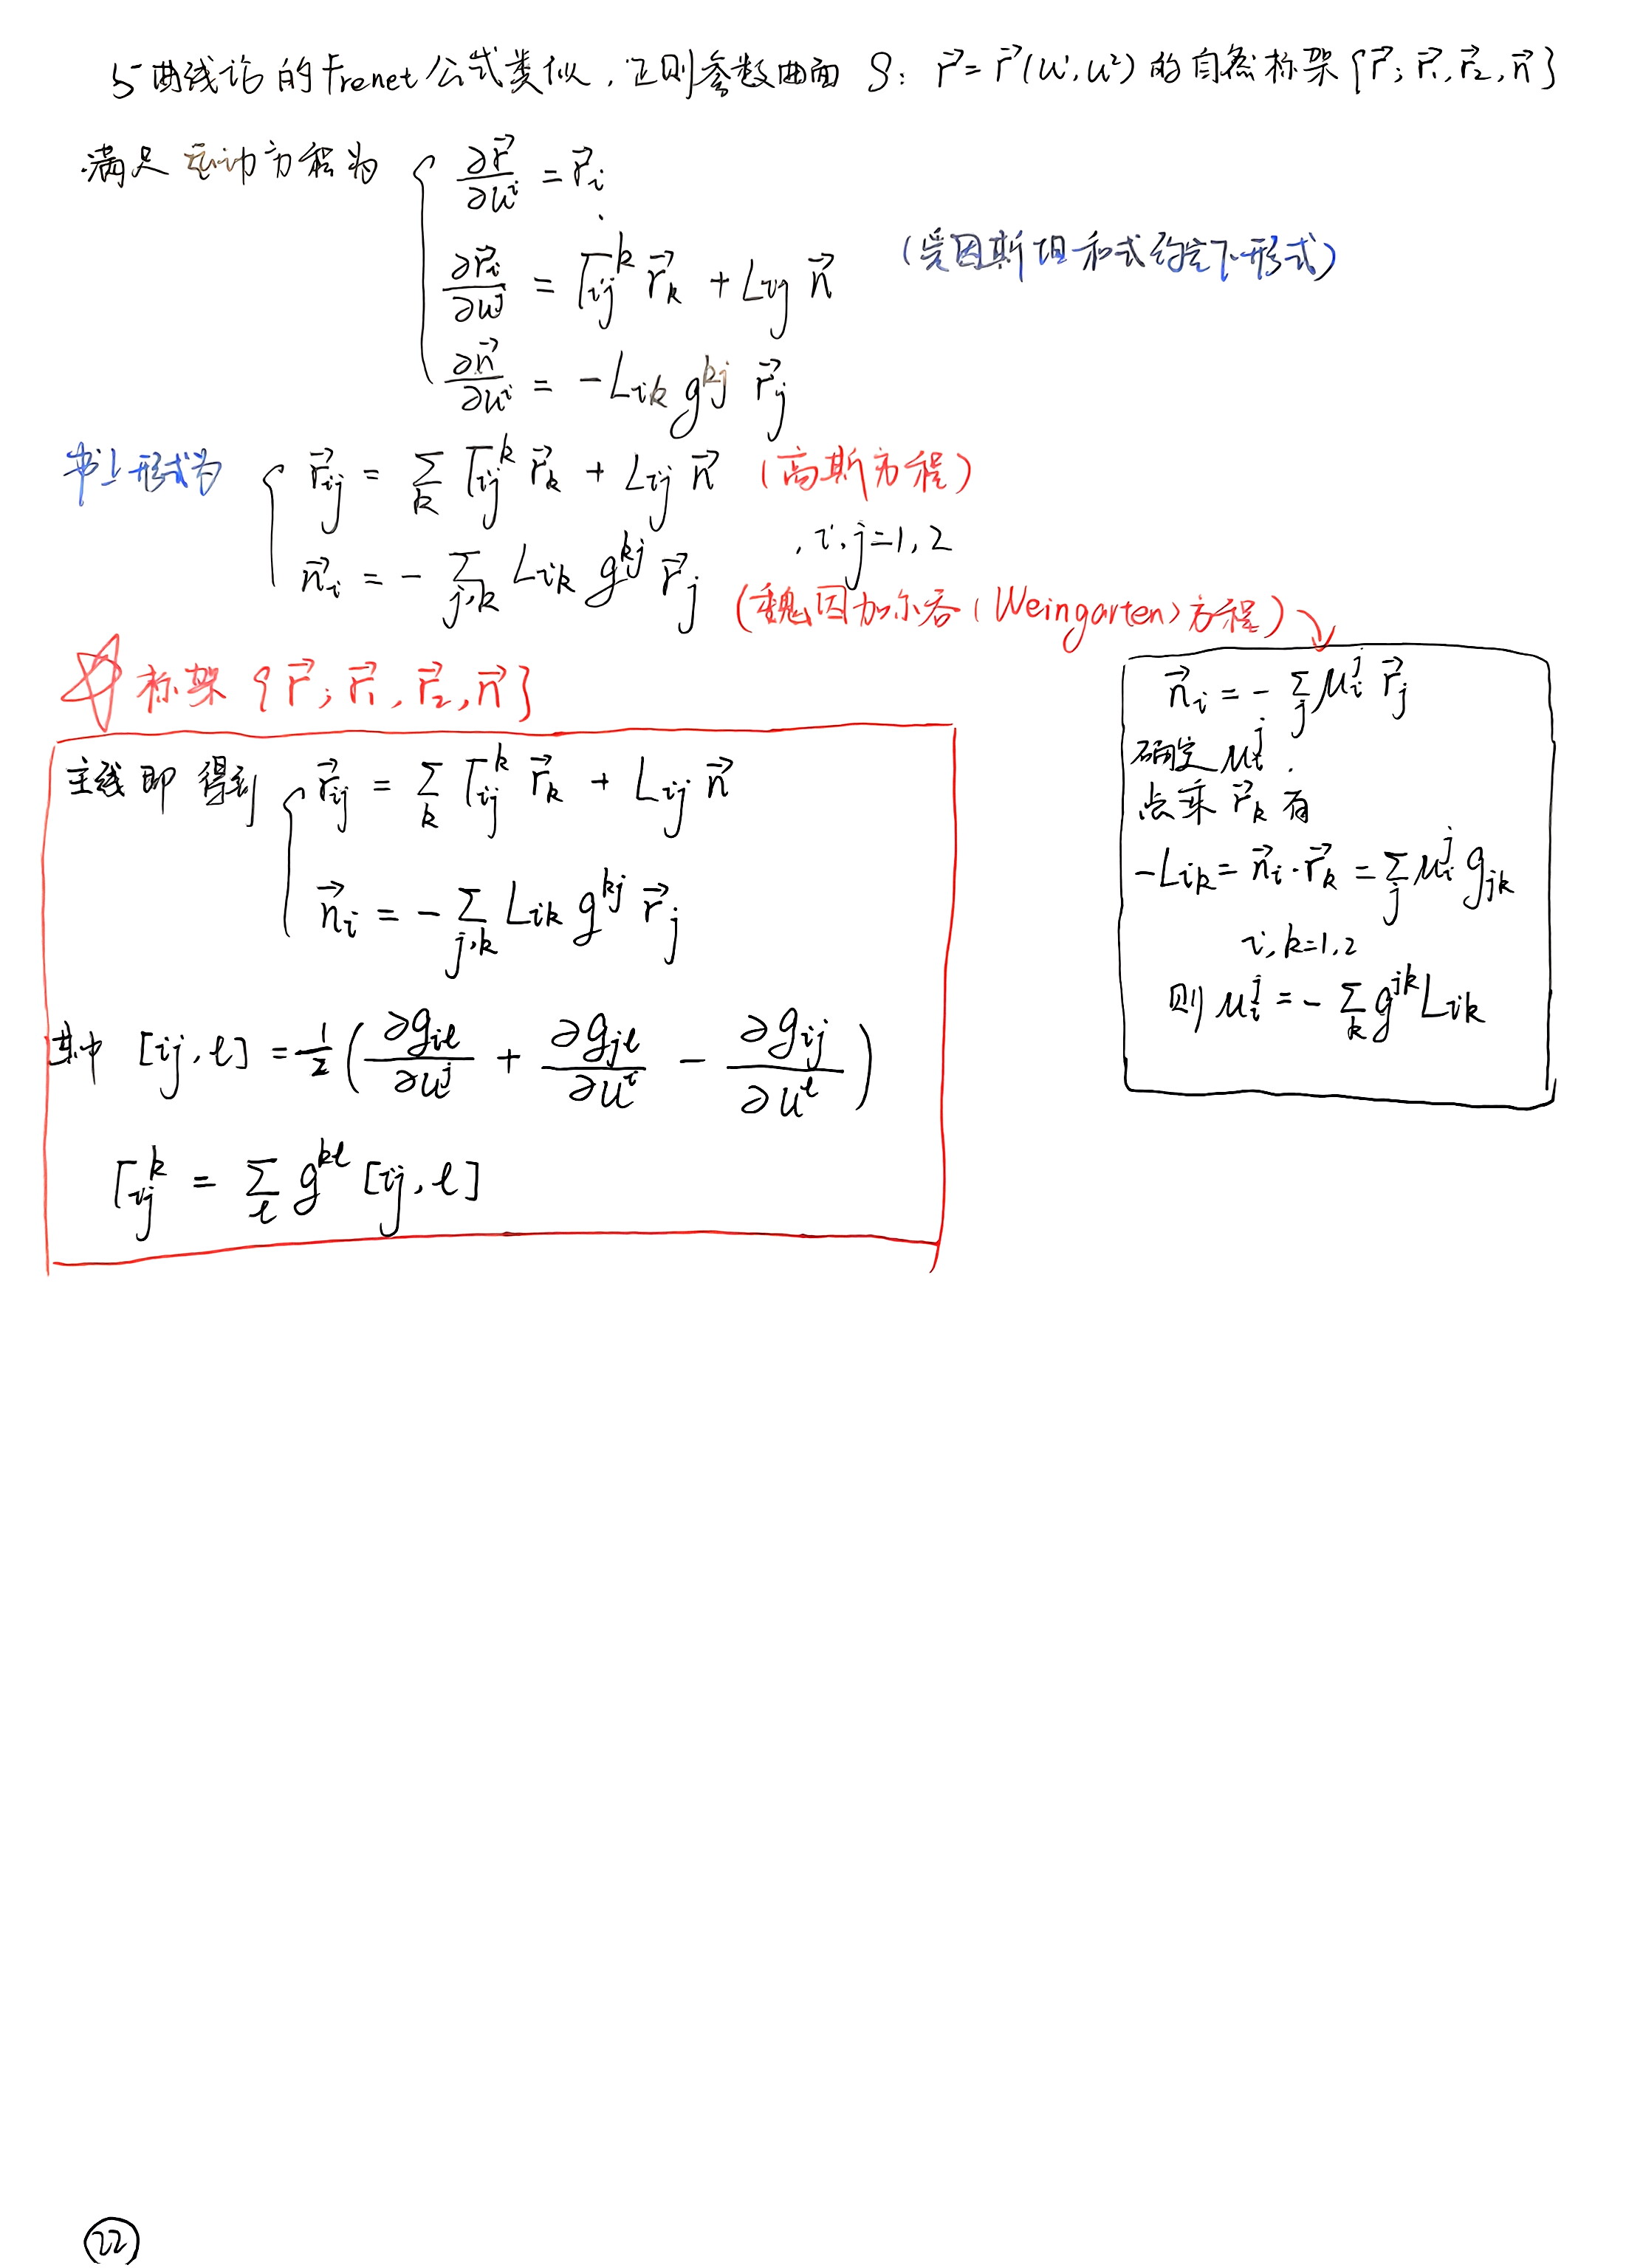 与曲线论的Frenet公式类似,正则参数曲面 S: r⃗=r⃗(u¹,u²)的自然标架{r⃗; r⃗₁,r⃗₂,n⃗}
满足运动方程为 { ∂r⃗/∂uⁱ = r⃗ᵢ
∂r⃗ᵢ/∂uʲ = Γᵢⱼᵏ r⃗ₖ + Lᵢⱼ n⃗ (爱因斯坦和式约定下形式)
∂n⃗/∂uⁱ = -Lᵢₖ gᵏʲ r⃗ⱼ
书上形式为 { r⃗ᵢⱼ = Σₖ Γᵢⱼᵏ r⃗ₖ + Lᵢⱼ n⃗ (高斯方程)
n⃗ᵢ = - Σⱼ,ₖ Lᵢₖ gᵏʲ r⃗ⱼ , i,j=1,2
(魏因加尔吞(Weingarten)方程)
标架 {r⃗; r⃗₁, r⃗₂, n⃗}
主线即得到 { r⃗ᵢⱼ = Σₖ Γᵢⱼᵏ r⃗ₖ + Lᵢⱼ n⃗
n⃗ᵢ = -Σⱼ,ₖ Lᵢₖ gᵏʲ r⃗ⱼ
其中 [ij,ℓ] = 1/2 (∂g_iℓ/∂uʲ + ∂g_jℓ/∂uⁱ - ∂g_ij/∂u^ℓ)
Γᵢⱼᵏ = Σ_ℓ g^kℓ [ij,ℓ]
n⃗ᵢ = - Σⱼ μᵢʲ r⃗ⱼ
确定μᵢʲ.
点乘 r⃗ₖ 有
-Lᵢₖ = n⃗ᵢ·r⃗ₖ = Σⱼ μᵢʲ gⱼₖ
i,k=1,2
则 μᵢʲ = - Σₖ gʲᵏ Lᵢₖ
22